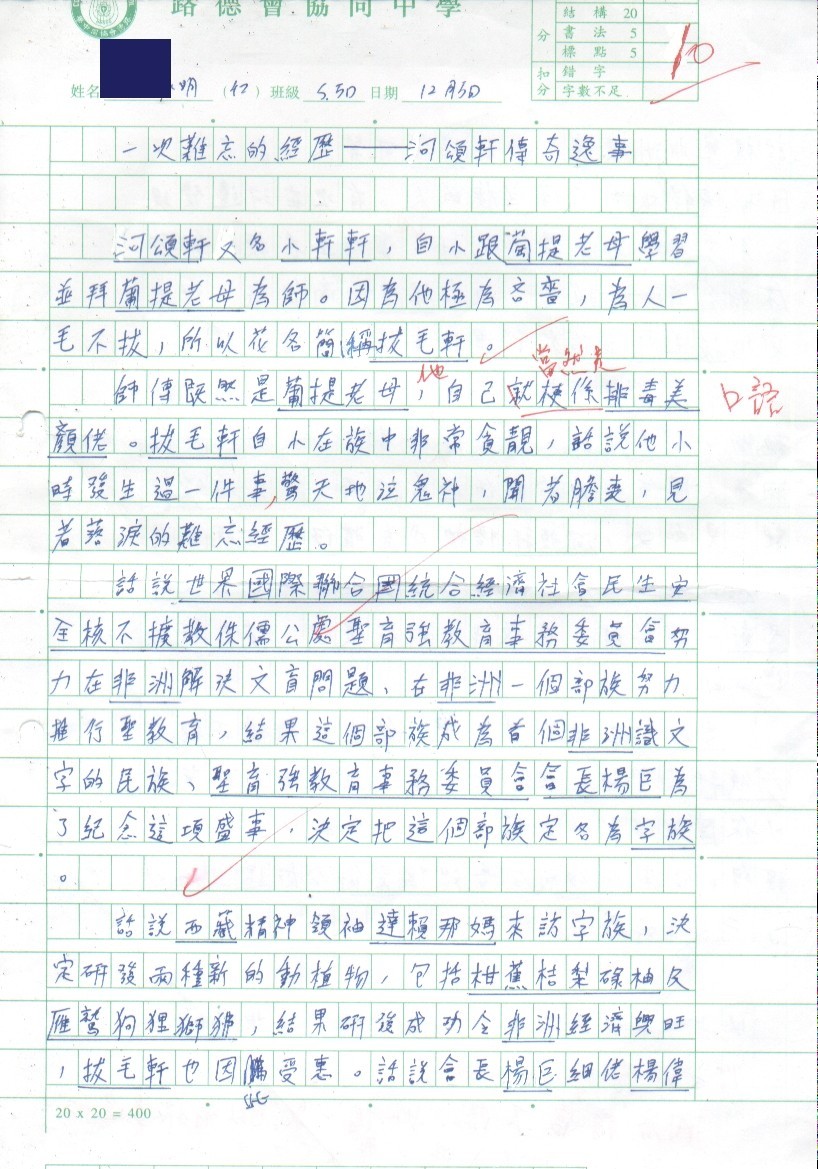 路德會協同中學
結構 20
分 書法 5
標點 5
扣分 錯字
字數不足
10
姓名 明 ( 42 ) 班級 S.5D 日期 12月5日
一次難忘的經歷——河頌軒傳奇逸事
河頌軒又名小軒軒，自小跟蘭提老母學習
並拜蘭提老母為師。因為他極為吝嗇，為人一
毛不拔，所以花名簡稱拔毛軒。
當然是
師傅既然是蘭提老母，他自己就梗係排毒美
口語
顏佬。拔毛軒自小在族中非常貪靚，話說他小
時發生過一件事，驚天地泣鬼神，聞者膽喪，見
者落淚的難忘經歷。
話說世界國際聯合國統合經濟社會民生安
全核不擴散侏儒公處聖育強教育事務委員會努
力在非洲解決文盲問題、在非洲一個部族努力
推行聖教育，結果這個部族成為首個非洲識文
字的民族、聖育強教育事務委員會會長楊巨為
了紀念這項盛事，決定把這個部族定名為字族
。
話說西藏精神領袖達賴那媽來訪字族，決
定研發兩種新的動植物，包括柑蕉桔梨碌柚及
雁鵞狗狸獅猴，結果研發成功令非洲經濟興旺
，拔毛軒也因此受惠。話說會長楊巨細佬楊偉
20 x 20 = 400